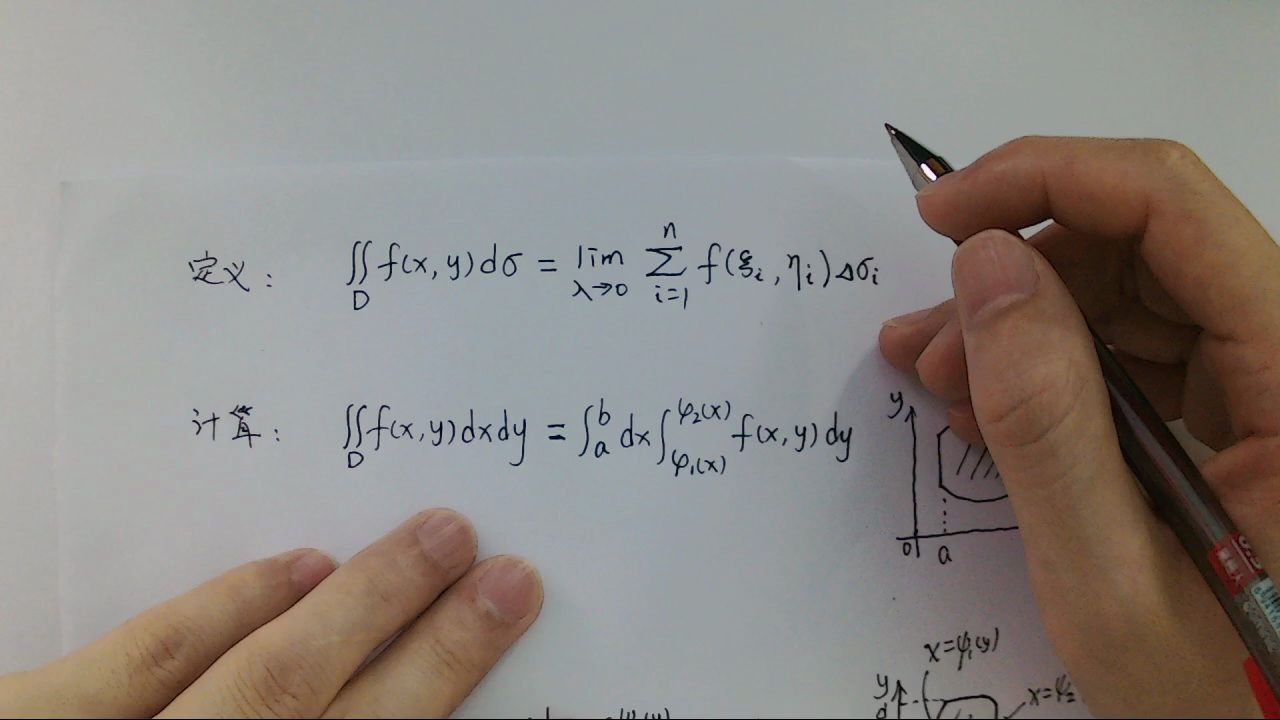 定义： ∬_D f(x,y)dσ = lim_{λ→0} ∑_{i=1}^{n} f(ξ_i, η_i)Δσ_i
计算： ∬_D f(x,y)dxdy = ∫_a^b dx ∫_{φ₁(x)}^{φ₂(x)} f(x,y)dy
y
0 a
x=ψ₁(y)
y
d